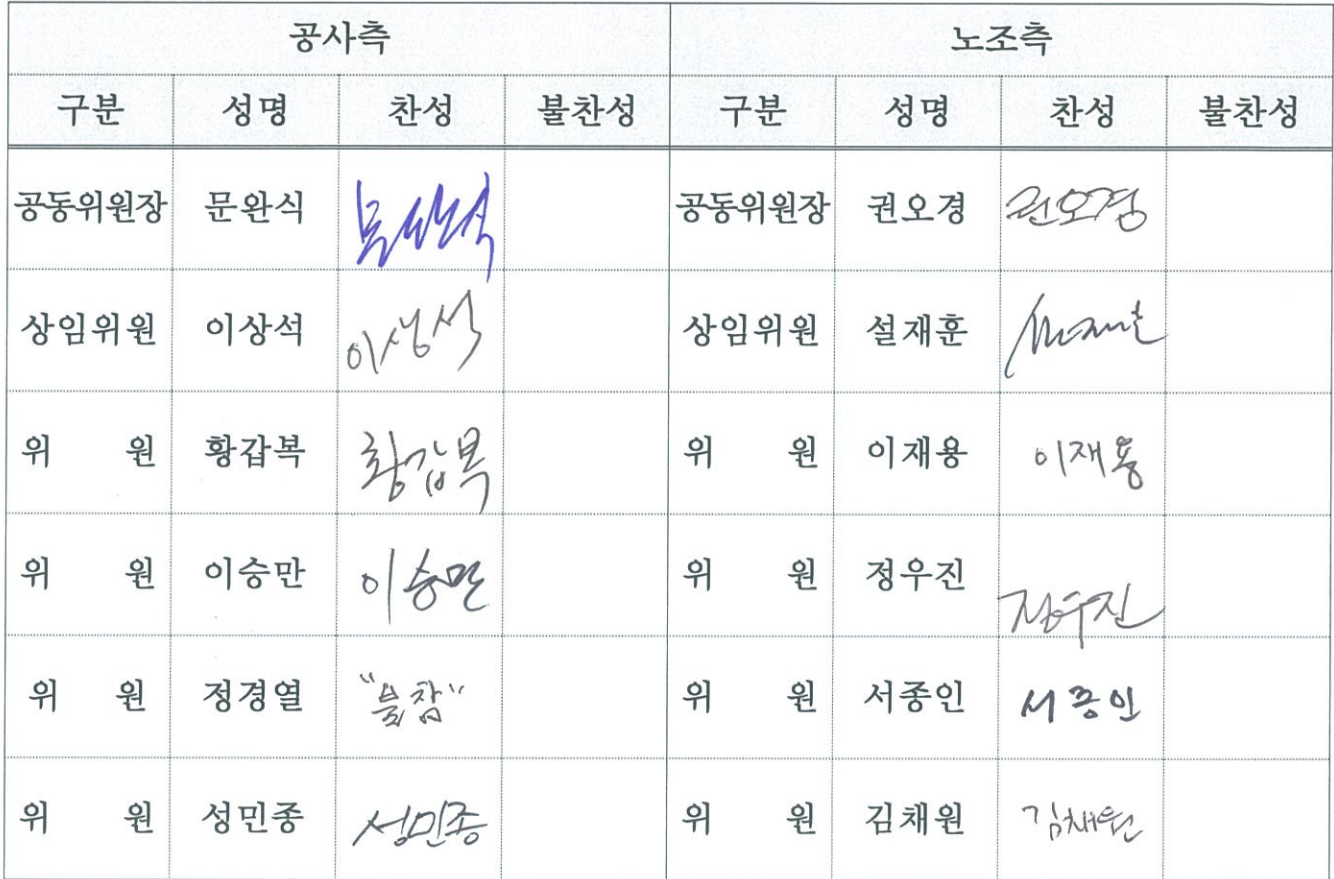 공사측 노조측
구분 성명 찬성 불찬성 구분 성명 찬성 불찬성
공동위원장 문완식 문완식 공동위원장 권오경 권오경
상임위원 이상석 이상석 상임위원 설재훈
위 원 황갑복 황갑복 위 원 이재용 이재용
위 원 이승만 이승만 위 원 정우진 정우진
위 원 정경열 "불참" 위 원 서종인 서종인
위 원 성민종 성민종 위 원 김채원 김채원